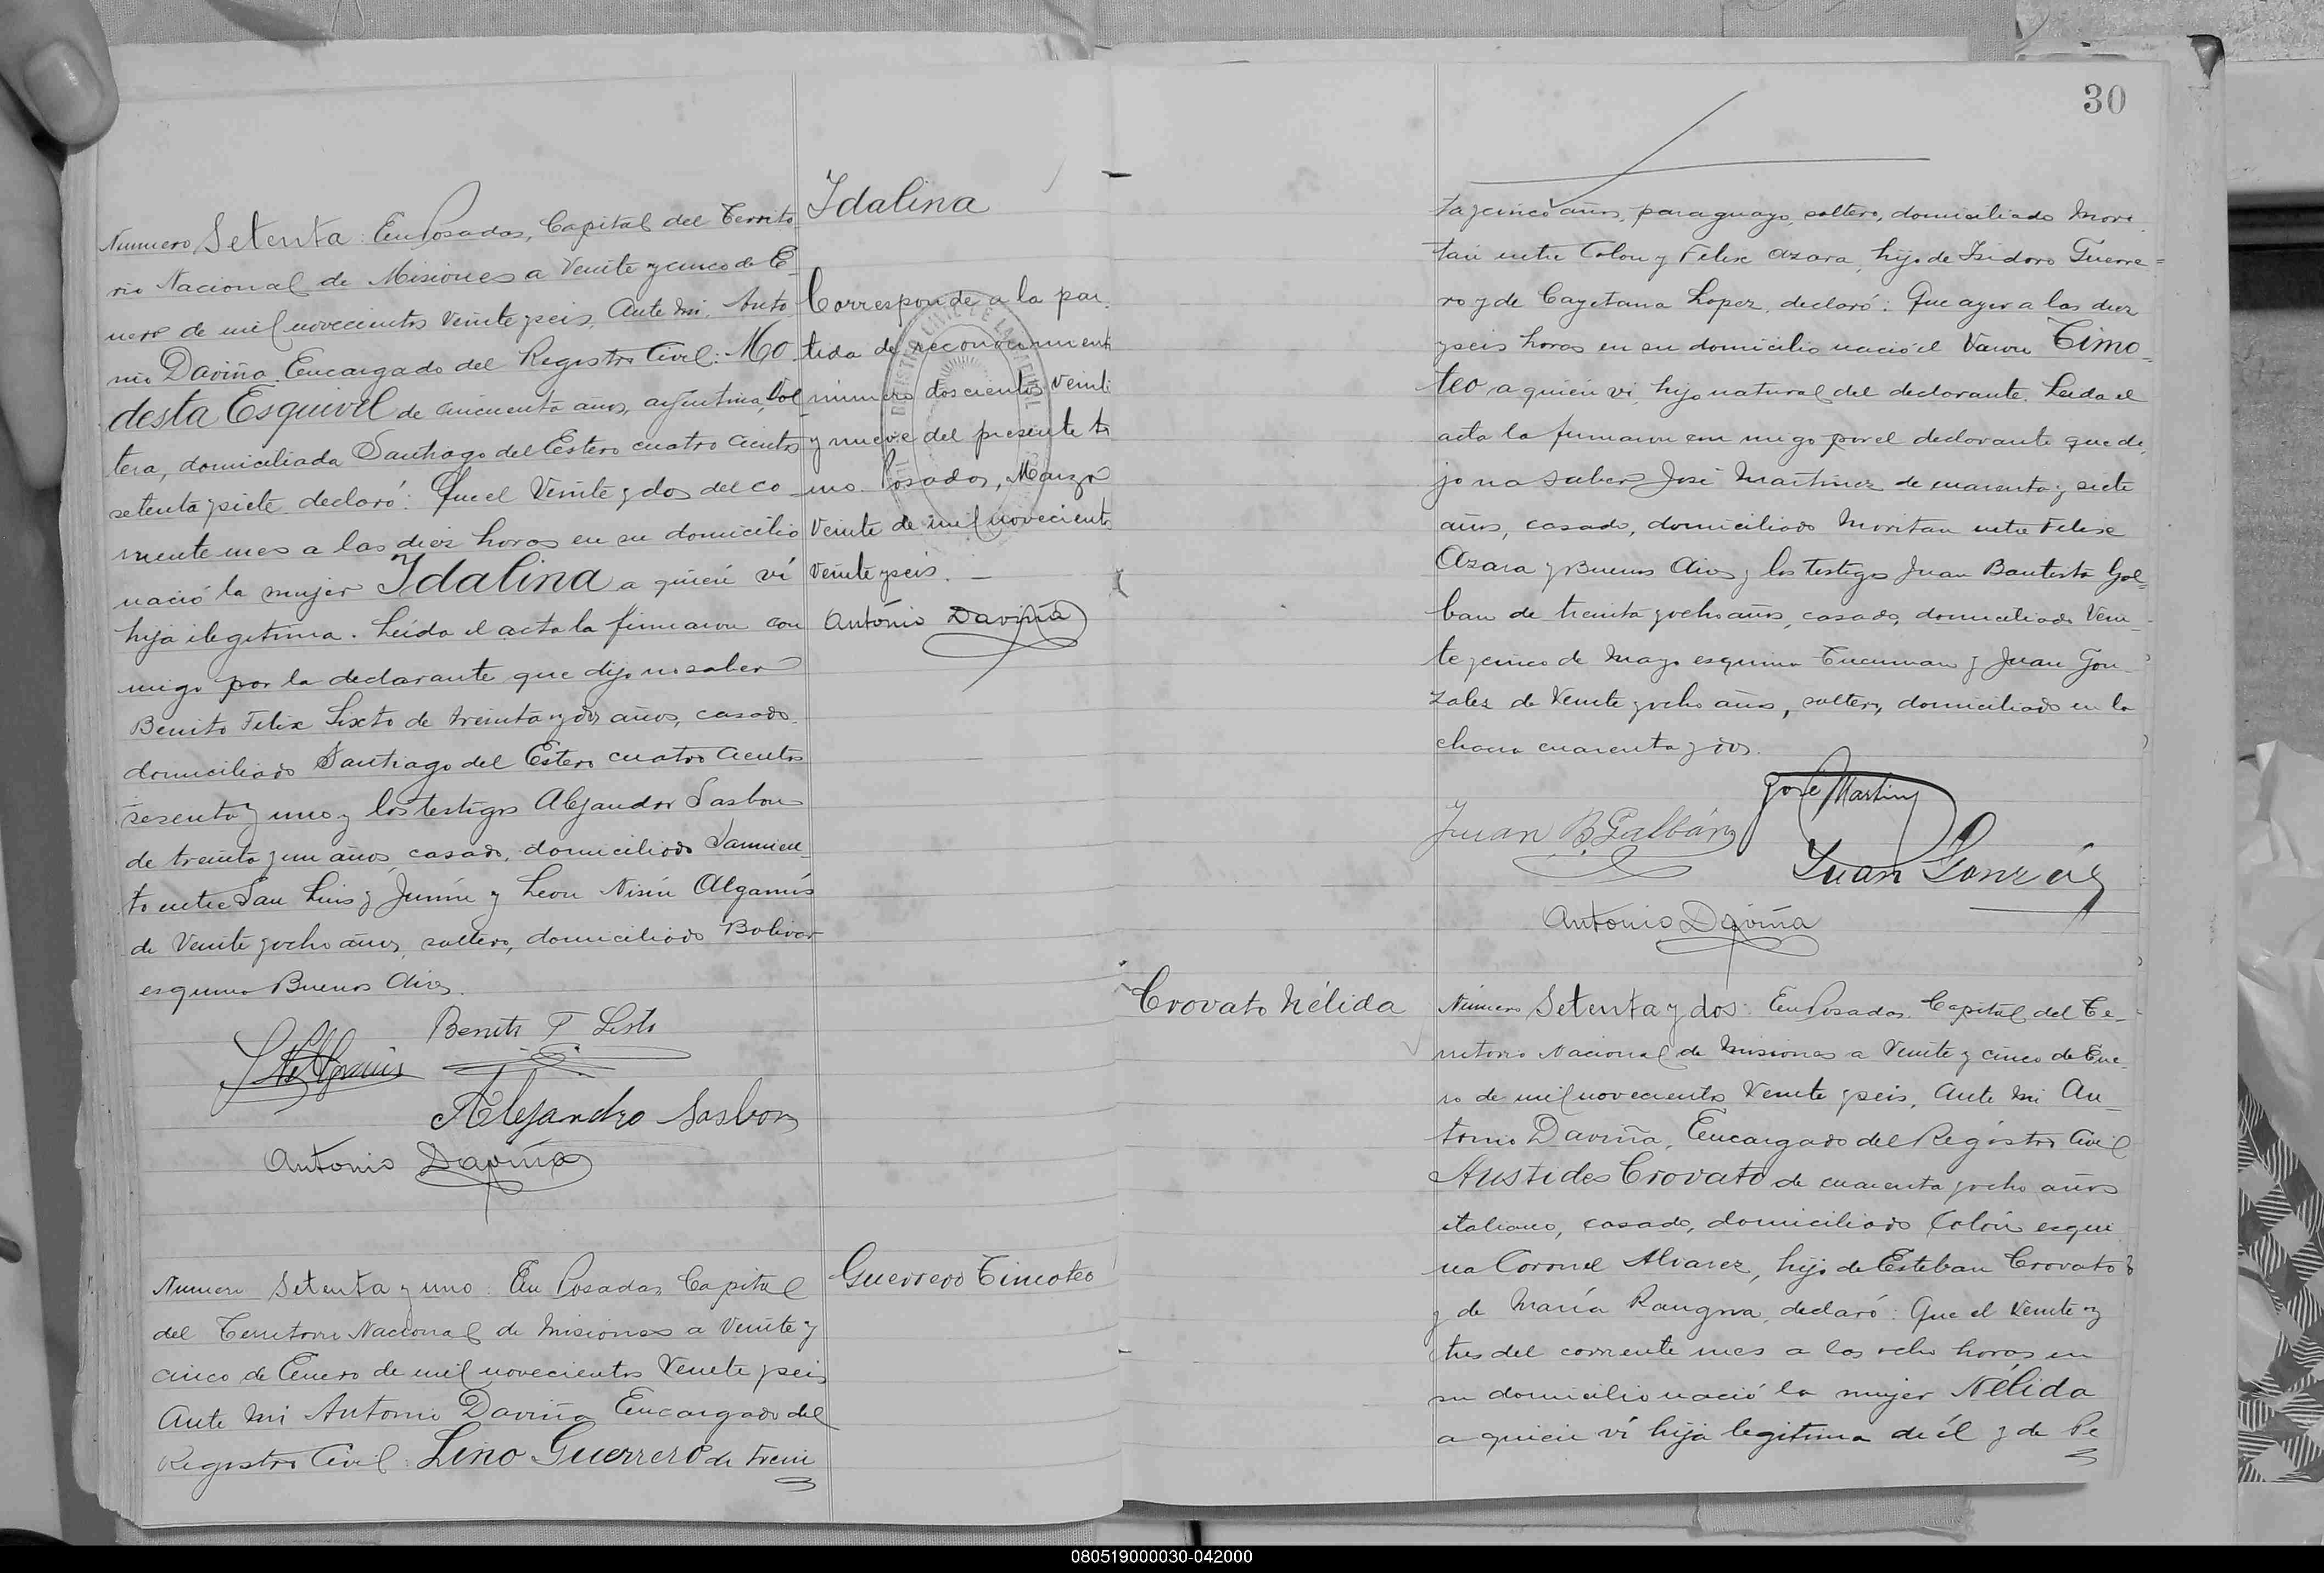 Idalina
Numero Setenta: En Posadas, Capital del Territo
rio Nacional de Misiones a Veinte y cinco de E-
nero de mil novecientos veinte y seis, Ante mi, Anto
nio Daviña Encargado del Registro Civil: Mo
desta Esquivel de cincuenta años, argentina, Sol
tera, domiciliada Santiago del Estero cuatro cientos
setenta y siete declaró: Que el Veinte y dos del co
rriente mes a las diez horas en su domicilio
nació la mujer Idalina a quien ví
hija ilegitima. Leida el acta la firmaron con
migo por la declarante que dijo no saber
Benito Felix Sixto de treinta y dos años, casado.
domiciliado Santiago del Estero cuatro cientos
sesenta y uno y los testigos Alejandro Sasbon
de treinta y un años, casado, domiciliado Sarmien_
to entre San Luis y Junin y Leon Nisin Algamis
de Veinte y ocho años, soltero, domiciliado Bolivar
esquina Buenos Aires.
Corresponde a la par.
tida de reconocimient
número doscientos veinti
y nueve del presente to
mo. Posadas, Marzo
Veinte de mil novecientos
veinte y seis. —
Antonio Daviña
Benito F Sisto
Alejandro Sasbon
Antonio Daviña
Guerrero Timoteo
Numero Setenta y uno: En Posadas, Capital
del Territorio Nacional de Misiones a Veinte y
cinco de Enero de mil novecientos Veinte y seis
Ante mi Antonio Daviña Encargado del
Registro Civil: Lino Guerrero de trein
30
ta y cinco años, paraguayo, soltero, domiciliado Mori
tan entre Colon y Felix Azara, hijo de Isidoro Guerre=
ro y de Cayetana Lopez, declaró: Que ayer a las diez
y seis horas en su domicilio nació el Varon Timo-
teo a quien vi, hijo natural del declarante. Leida el
acta la firmaron con migo por el declarante que di
jo no saber José Martinez de cuarenta y siete
años, casado, domiciliado Moritan entre Felix
Azara y Buenos Aires y los testigos Juan Bautista Gal-
ban de treinta y ocho años, casado, domiciliado Vein_
te y cinco de Mayo esquina Tucuman y Juan Gon_
zalez de Veinte y ocho años, soltero, domiciliado en la
chacra cuarenta y dos.
José Martinz
Juan B. Galbán
Juan Gonzáz
Antonio Daviña
Crovato Nélida
Número Setenta y dos: En Posadas, Capital del Te_
rritorio Nacional de Misiones a Veinte y cinco de Ene
ro de mil novecientos Veinte y seis, Ante mi An_
tonio Daviña, Encargado del Registro Civil
Aristides Crovato de cuarenta y ocho años
italiano, casado, domiciliado Colón esqui
na Coronel Alvarez, hijo de Esteban Crovato
y de María declaró: Que el Veinte y
tres del corriente mes a las ocho horas en
su domicilio nació la mujer Nélida
a quien ví hija legitima de él y de Pe
080519000030-042000